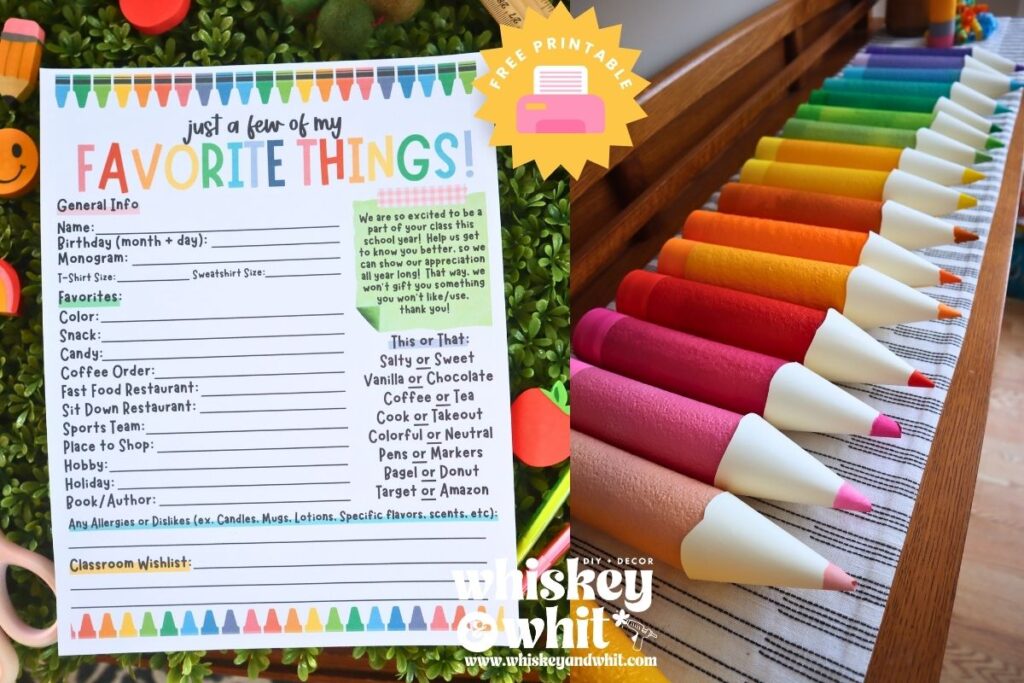 FREE PRINTABLE
just a few of my
FAVORITE THINGS!
General Info
Name:
Birthday (month + day):
Monogram:
T-Shirt Size: Sweatshirt Size:
Favorites:
Color:
Snack:
Candy:
Coffee Order:
Fast Food Restaurant:
Sit Down Restaurant:
Sports Team:
Place to Shop:
Hobby:
Holiday:
Book/Author:
We are so excited to be a
part of your class this
school year! Help us get
to know you better, so we
can show our appreciation
all year long! That way, we
won't gift you something
you won't like/use.
thank you!
This or That:
Salty or Sweet
Vanilla or Chocolate
Coffee or Tea
Cook or Takeout
Colorful or Neutral
Pens or Markers
Bagel or Donut
Target or Amazon
Any Allergies or Dislikes (ex. Candles, Mugs, Lotions, Specific flavors, scents, etc):
Classroom Wishlist:
DIY + DECOR
whiskey
& whit
www.whiskeyandwhit.com